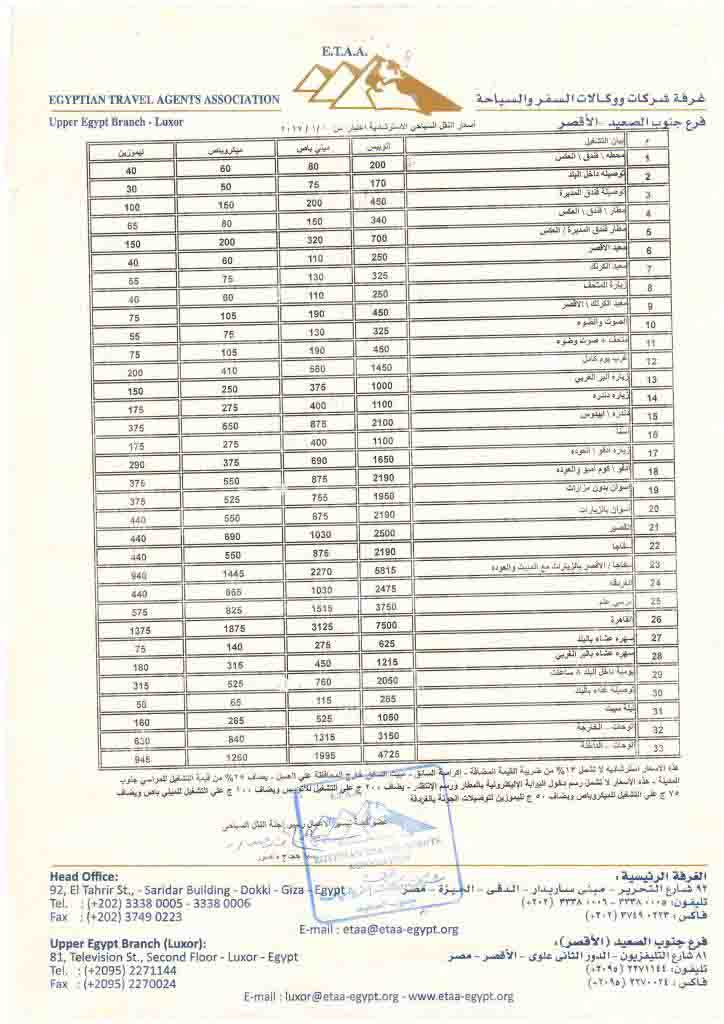 E.T.A.A.
EGYPTIAN TRAVEL AGENTS ASSOCIATION
غرفة شركات ووكالات السفر والسياحة
Upper Egypt Branch - Luxor
فرع جنوب الصعيد - الأقصر
أسعار النقل السياحي الاسترشادية اعتبار من
م بيان التشغيل أتوبيس ميني باص ميكروباص ليموزين
1 محطه \ فندق \ العكس 200 80 60 40
2 توصيله داخل البلد 170 75 50 30
3 توصيلة فندق المديرة 450 200 150 100
4 مطار \ فندق \ العكس 340 150 80 65
5 مطار فندق المديرة / العكس 700 320 200 150
6 معبد الأقصر 250 110 60 40
7 معبد الكرنك 325 130 75 55
8 زيارة المتحف 250 110 60 40
9 معبد الكرنك \ الأقصر 450 190 105 75
10 الصوت والضوء 325 130 75 55
11 متحف + صوت وضوء 450 190 105 75
12 غرب يوم كامل 1450 560 410 200
13 زياره البر الغربي 1000 375 250 150
14 زياره دندره 1100 400 275 175
15 دندره \ ابيدوس 2100 875 550 375
16 إسنا 1100 400 275 175
17 زياره ادفو \ العوده 1650 690 375 290
18 ادفو \ كوم امبو والعوده 2190 875 550 375
19 اسوان بدون مزارات 1950 755 525 375
20 أسوان بالزيارات 2190 875 550 440
21 القصير 2500 1030 690 440
22 سفاجا 2190 875 550 440
23 سفاجا / الأقصر بالزيارات مع المبيت والعوده 5815 2270 1445 940
24 الغردقه 2475 1030 665 440
25 مرسي علم 3750 1515 825 575
26 القاهرة 7500 3125 1875 1375
27 سهره عشاء بالبلد 625 275 140 75
28 سهره عشاء بالبر الغربي 1215 450 315 180
29 يومية داخل البلد ٨ ساعات 2050 760 525 315
30 توصيله غداء بالبلد 265 115 65 50
31 ليلة مبيت 1050 525 265 160
32 الوحات - الخارجة 3150 1315 840 630
33 الوحات - الداخلة 4725 1995 1260 945
هذه الاسعار استرشادية لا تشمل ١٣% من ضريبة القيمة المضافة - إكرامية السائق - مبيت السائق خارج المحافظة علي العميل - يضاف ٢٥% من قيمة التشغيل للمراسي جنوب
المدينة - هذه الأسعار لا تشمل رسم دخول البوابة الإليكترونية بالمطار ورسم الإنتظار - يضاف ٢٠٠ ج علي التشغيل للأتوبيس ويضاف ١٠٠ ج علي التشغيل للميني باص ويضاف
٧٥ ج علي التشغيل للميكروباص ويضاف ٥٠ ج لليموزين لتوصيلات الجونة بالغردقة
E.T.A.A.
عضو لجنة تيسير الأعمال رئيس لجنة النقل السياحي
EGYPTIAN TRAVEL AGENTS
ASSOCIATION
Head Office:
الغرفة الرئيسية :
92, El Tahrir St., - Saridar Building - Dokki - Giza - Egypt
٩٢ شارع التحرير - مبنى ساريدار - الدقى - الجيزة - مصر
Tel. : (+202) 3338 0005 - 3338 0006
تليفون: ٣٣٣٨ ٠٠٠٥ - ٣٣٣٨ ٠٠٠٦ (٢٠٢+)
Fax : (+202) 3749 0223
فاكس : ٣٧٤٩ ٠٢٢٣ (٢٠٢+)
E-mail : etaa@etaa-egypt.org
Upper Egypt Branch (Luxor):
فرع جنوب الصعيد (الأقصر):
81, Television St., Second Floor - Luxor - Egypt
٨١ شارع التليفزيون - الدور الثانى علوى - الأقصر - مصر
Tel. : (+2095) 2271144
تليفون: ٢٢٧١١٤٤ (٢٠٩٥+)
Fax : (+2095) 2270024
فاكس : ٢٢٧٠٠٢٤ (٢٠٩٥+)
E-mail : luxor@etaa-egypt.org - www.etaa-egypt.org